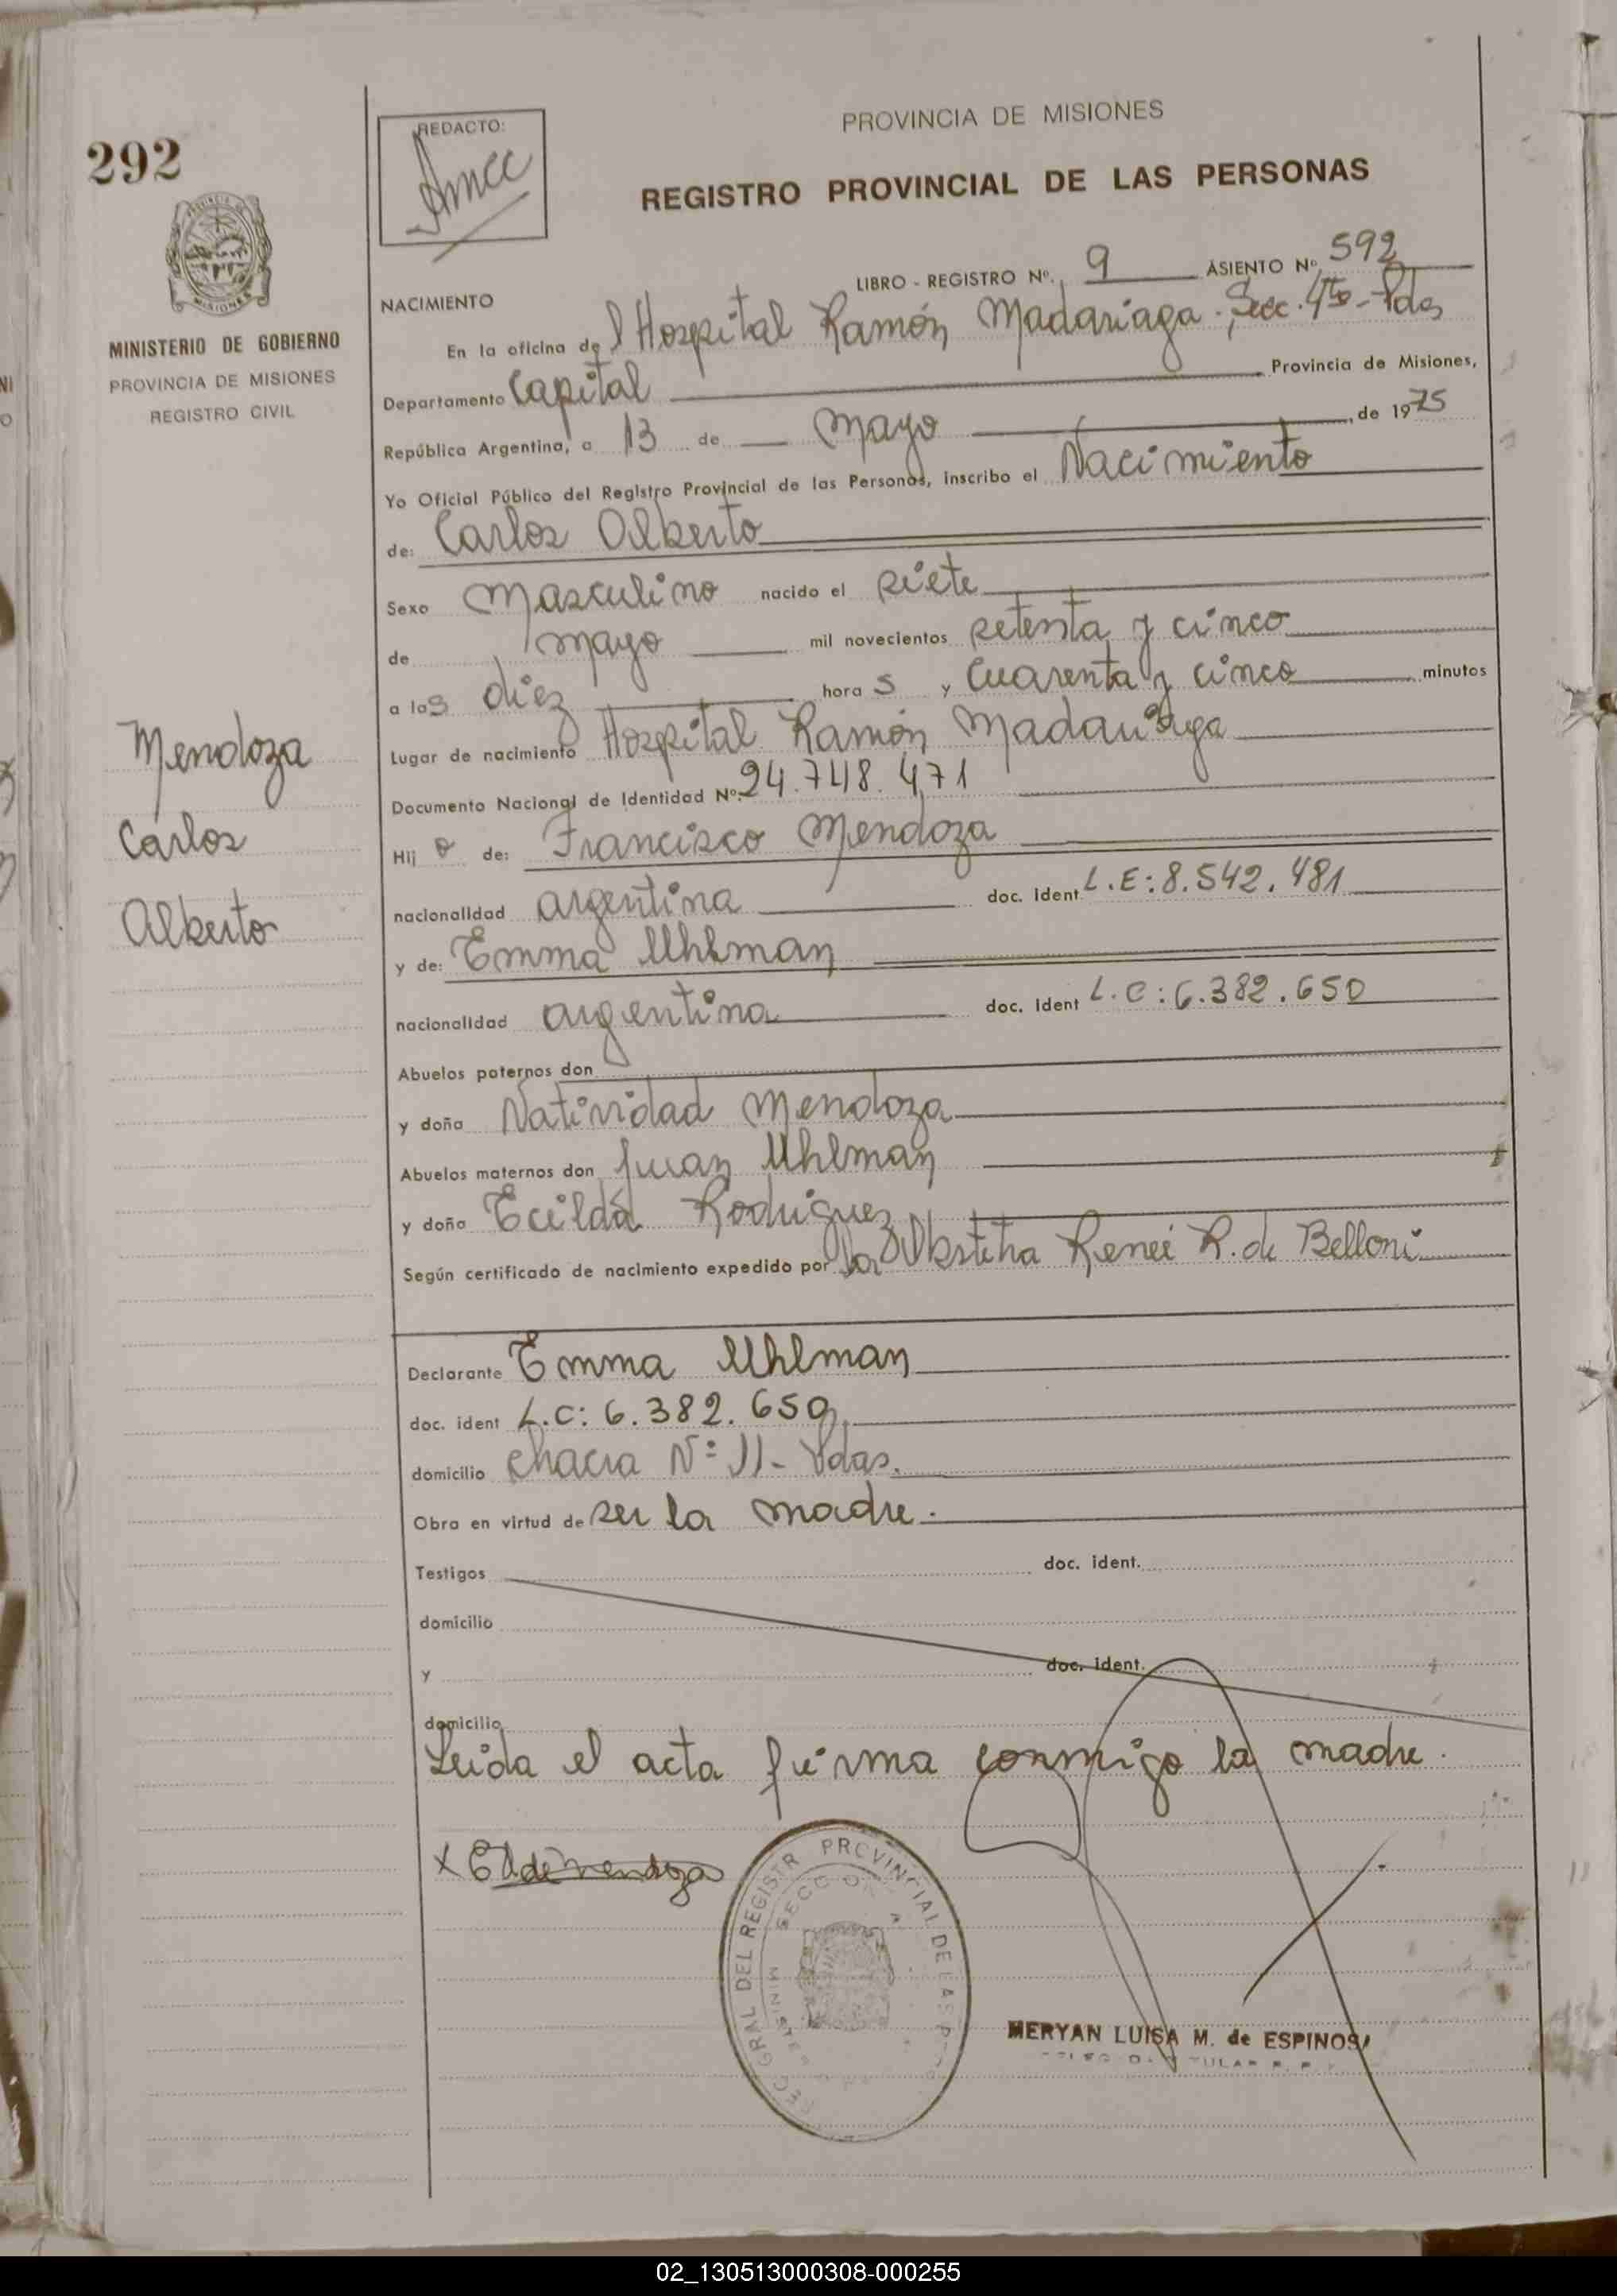 292
REDACTO:
PROVINCIA DE MISIONES
REGISTRO PROVINCIAL DE LAS PERSONAS
LIBRO - REGISTRO Nº. 9 ASIENTO Nº 592
MINISTERIO DE GOBIERNO
PROVINCIA DE MISIONES
REGISTRO CIVIL
NACIMIENTO
En la oficina del Hospital Ramón Madariaga. Secc. 4ta - Pdas
Departamento Capital Provincia de Misiones,
República Argentina, a 13 de mayo de 1975
Yo Oficial Público del Registro Provincial de las Personas, inscribo el Nacimiento
de: Carlos Alberto
Sexo Masculino nacido el siete
de mayo mil novecientos setenta y cinco
a las diez horas y cuarenta y cinco minutos
Lugar de nacimiento Hospital Ramón Madariaga
Documento Nacional de Identidad Nº. 24.748.471
Mendoza
Carlos
Alberto
Hijo de: Francisco Mendoza
nacionalidad argentina doc. ident. L.E: 8.542.481
y de: Emma Uhlman
nacionalidad argentina doc. ident L.C: 6.382.650
Abuelos paternos don
y doña Natividad Mendoza
Abuelos maternos don Juan Uhlman
y doña Ecilda Rodriguez
Según certificado de nacimiento expedido por la Obstetra Reneé R. de Belloni
Declarante Emma Uhlman
doc. ident L.C: 6.382.650
domicilio chacra Nº 11 - Pdas.
Obra en virtud de ser la madre.
Testigos doc. ident.
domicilio
y doc. ident.
domicilio
Leida el acta firma conmigo la madre.
MERYAN LUISA M. de ESPINOSA
02_130513000308-000255